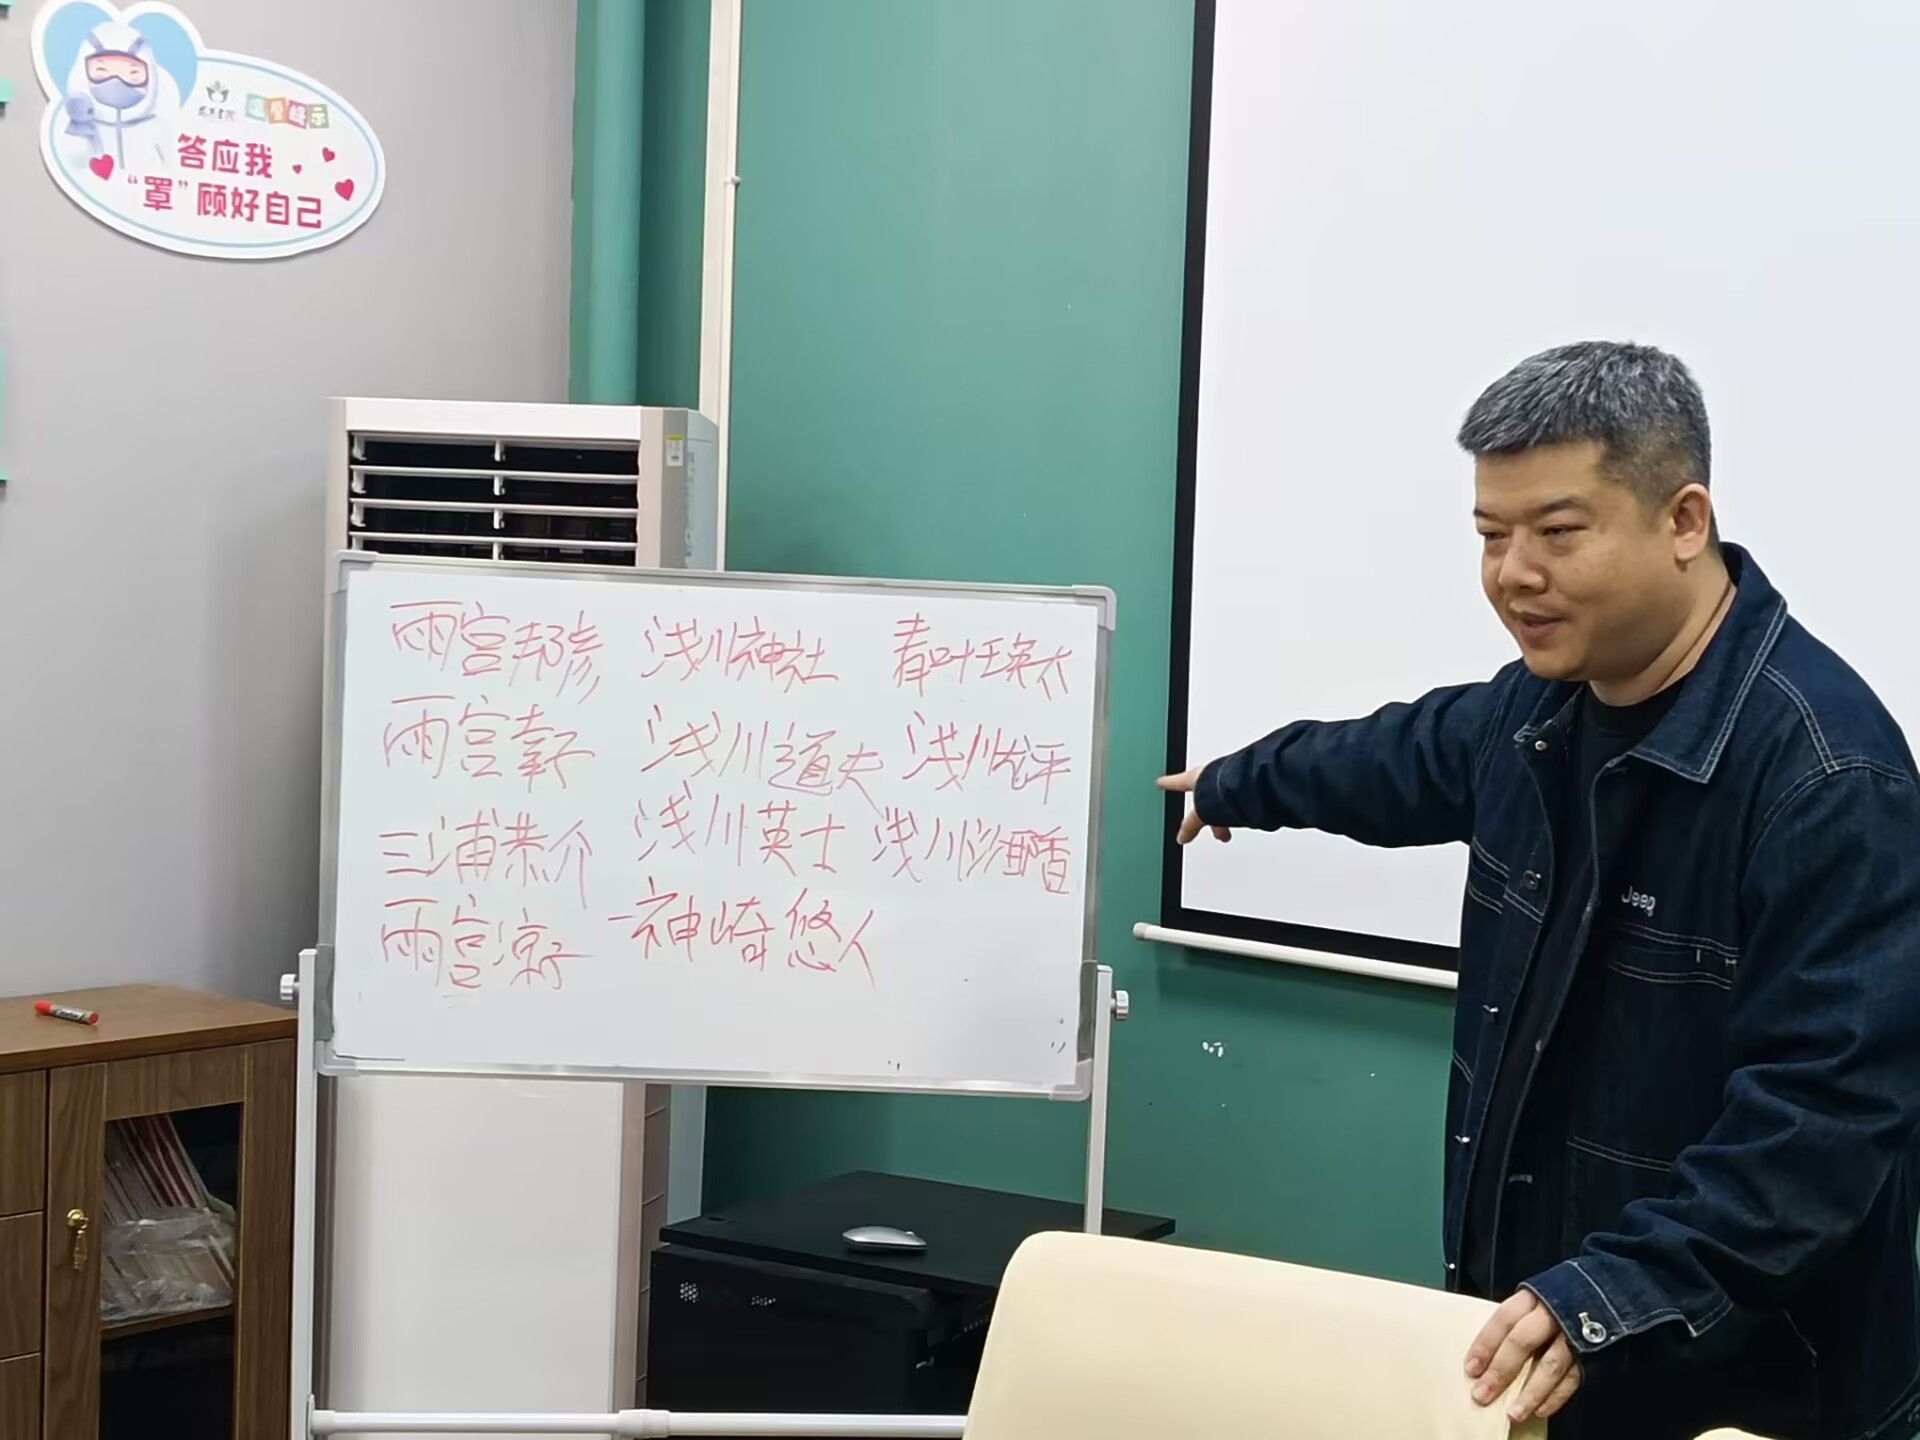 温馨提示
答应我
“罩”顾好自己
雨宫邦彦 浅川神社 春叶瑛太
雨宫幸子 浅川道夫 浅川优平
三浦恭介 浅川英士 浅川沙耶香
雨宫凉子 神崎悠人
Jeep